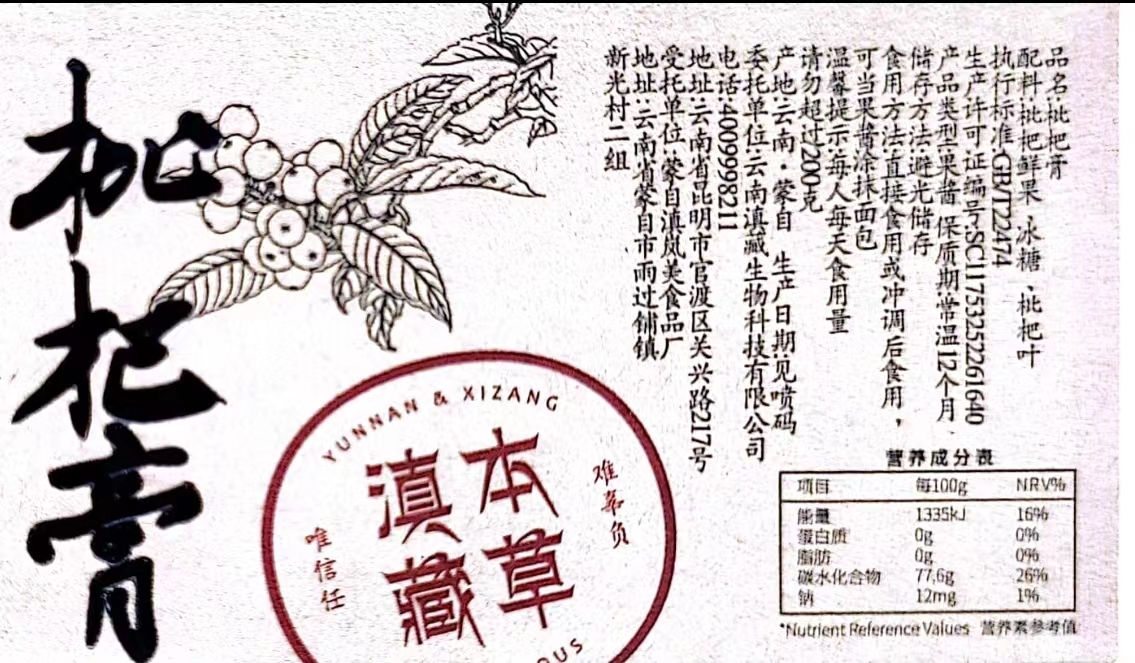 枇杷膏
品名:枇杷膏
配料:枇杷鲜果、冰糖、枇杷叶
执行标准:GB/T22474
生产许可证编号:SC11753252261640
产品类型:果酱 保质期:常温12个月
储存方法:避光储存
食用方法:直接食用或冲调后食用,
可当果酱涂抹面包
温馨提示:每人每天食用量
请勿超过200克
产地:云南·蒙自 生产日期:见喷码
委托单位:云南滇藏生物科技有限公司
电话:4009998211
地址:云南省昆明市官渡区关兴路217号
受托单位:蒙自滇岚美食品厂
地址:云南省蒙自市雨过铺镇
新光村二组
YUNNAN & XIZANG
本草
滇藏
难辜负
唯信任
营养成分表
项目 每100g NRV%
能量 1335kJ 16%
蛋白质 0g 0%
脂肪 0g 0%
碳水化合物 77.6g 26%
钠 12mg 1%
*Nutrient Reference Values 营养素参考值